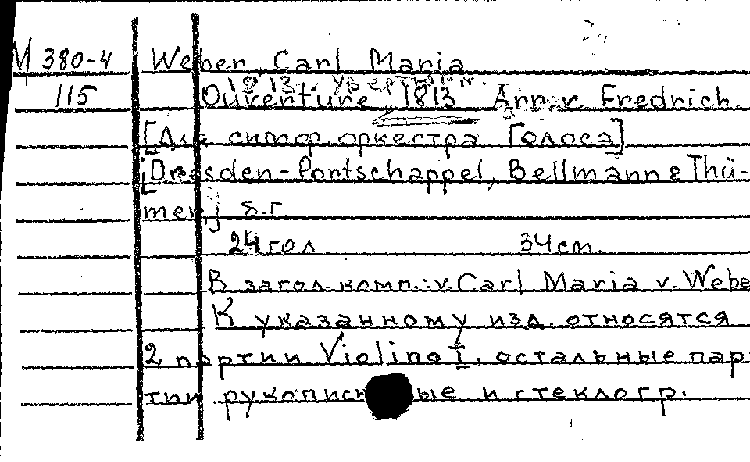 М 380-4 Weber, Carl Maria
115 Ouverture "1813" Arr. v. Fredrich.
[Для симф. оркестра. Голоса]
[Dresden-Pontschappel, Bellmann & Thü-
mer,] s. г.
24 гол 34 cm.
В загол. комп.: v. Carl Maria v. Webe
К указанному изд. относятся
2 партии Violino I, остальные пар
тии рукописные и стеклогр.